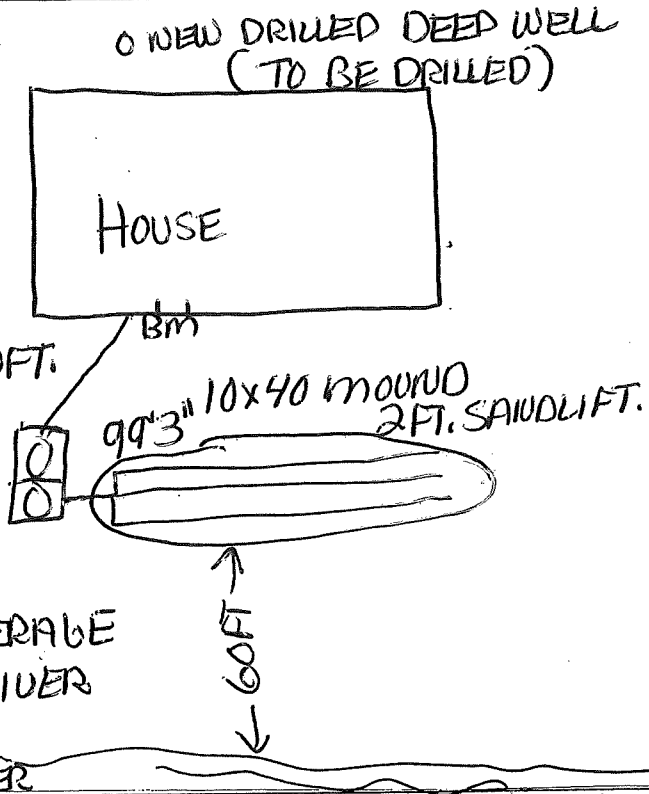 O NEW DRILLED DEEP WELL
(TO BE DRILLED)
HOUSE
BM
FT.
99'3" 10X40 MOUND
2FT. SANDLIFT.
60FT
ERAGE
IVER
ER